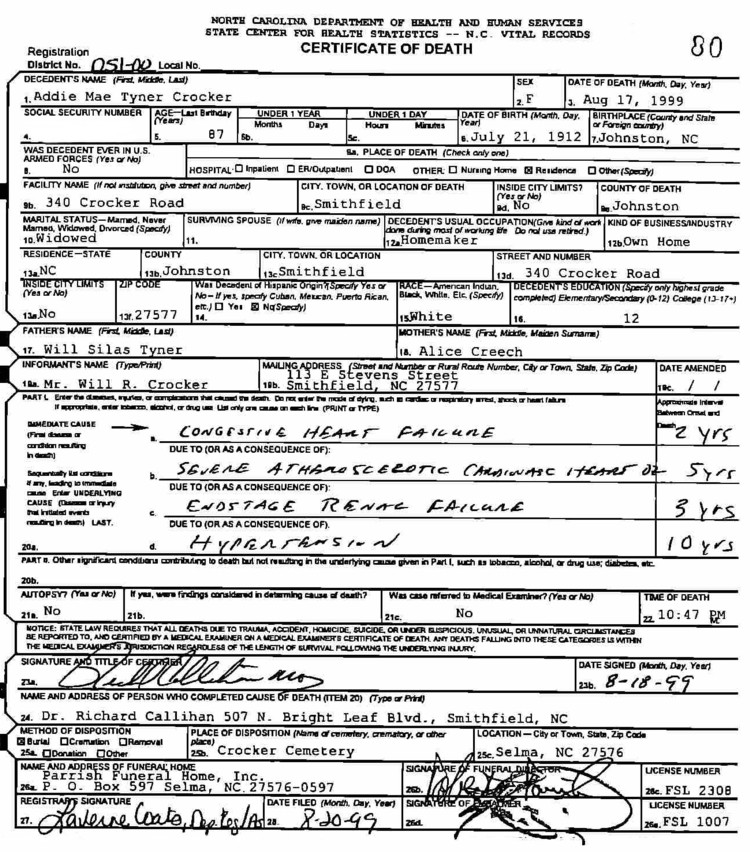 NORTH CAROLINA DEPARTMENT OF HEALTH AND HUMAN SERVICES
STATE CENTER FOR HEALTH STATISTICS -- N.C. VITAL RECORDS
CERTIFICATE OF DEATH
80
Registration
District No. 051-00 Local No.
DECEDENT'S NAME (First, Middle, Last) SEX DATE OF DEATH (Month, Day, Year)
1. Addie Mae Tyner Crocker 2. F 3. Aug 17, 1999
SOCIAL SECURITY NUMBER AGE—Last Birthday (Years) UNDER 1 YEAR UNDER 1 DAY DATE OF BIRTH (Month, Day, Year) BIRTHPLACE (County and State or Foreign country)
Months Days Hours Minutes
4. 5. 87 5b. 5c. 6. July 21, 1912 7. Johnston, NC
WAS DECEDENT EVER IN U.S. ARMED FORCES (Yes or No) 9a. PLACE OF DEATH (Check only one)
8. No HOSPITAL: ☐ Inpatient ☐ ER/Outpatient ☐ DOA OTHER: ☐ Nursing Home ☒ Residence ☐ Other (Specify)
FACILITY NAME (If not institution, give street and number) CITY, TOWN, OR LOCATION OF DEATH INSIDE CITY LIMITS? (Yes or No) COUNTY OF DEATH
9b. 340 Crocker Road 9c. Smithfield 9d. No 9e. Johnston
MARITAL STATUS—Married, Never Married, Widowed, Divorced (Specify) SURVIVING SPOUSE (If wife, give maiden name) DECEDENT'S USUAL OCCUPATION (Give kind of work done during most of working life Do not use retired.) KIND OF BUSINESS/INDUSTRY
10. Widowed 11. 12a. Homemaker 12b. Own Home
RESIDENCE—STATE COUNTY CITY, TOWN, OR LOCATION STREET AND NUMBER
13a. NC 13b. Johnston 13c. Smithfield 13d. 340 Crocker Road
INSIDE CITY LIMITS (Yes or No) ZIP CODE Was Decedent of Hispanic Origin? (Specify Yes or No—If yes, specify Cuban, Mexican, Puerto Rican, etc.) ☐ Yes ☒ No (Specify) RACE—American Indian, Black, White, Etc. (Specify) DECEDENT'S EDUCATION (Specify only highest grade completed) Elementary/Secondary (0-12) College (13-17+)
13e. No 13f. 27577 14. 15. White 16. 12
FATHER'S NAME (First, Middle, Last) MOTHER'S NAME (First, Middle, Maiden Surname)
17. Will Silas Tyner 18. Alice Creech
INFORMANT'S NAME (Type/Print) MAILING ADDRESS (Street and Number or Rural Route Number, City or Town, State, Zip Code) DATE AMENDED
113 E Stevens Street
19a. Mr. Will R. Crocker 19b. Smithfield, NC 27577 19c. / /
PART I. Enter the diseases, injuries, or complications that caused the death. Do not enter the mode of dying, such as cardiac or respiratory arrest, shock or heart failure
If appropriate, enter tobacco, alcohol, or drug use. List only one cause on each line (PRINT or TYPE)
Approximate Interval Between Onset and Death
IMMEDIATE CAUSE (Final disease or condition resulting in death)
a. CONGESTIVE HEART FAILURE 2 yrs
DUE TO (OR AS A CONSEQUENCE OF):
Sequentially list conditions if any, leading to immediate cause Enter UNDERLYING CAUSE (Disease or injury that initiated events resulting in death) LAST.
b. SEVERE ATHEROSCEROTIC CARDIOVASC HEART DZ 5 yrs
DUE TO (OR AS A CONSEQUENCE OF):
c. ENDSTAGE RENAL FAILURE 3 yrs
DUE TO (OR AS A CONSEQUENCE OF).
20a. d. HYPERTENSION 10 yrs
PART II. Other significant conditions contributing to death but not resulting in the underlying cause given in Part I, such as tobacco, alcohol, or drug use; diabetes, etc.
20b.
AUTOPSY? (Yes or No) If yes, were findings considered in determing cause of death? Was case referred to Medical Examiner? (Yes or No) TIME OF DEATH
21a. No 21b. 21c. No 22. 10:47 PM
NOTICE: STATE LAW REQUIRES THAT ALL DEATHS DUE TO TRAUMA, ACCIDENT, HOMICIDE, SUICIDE, OR UNDER SUSPICIOUS, UNUSUAL, OR UNNATURAL CIRCUMSTANCES
BE REPORTED TO, AND CERTIFIED BY A MEDICAL EXAMINER ON A MEDICAL EXAMINER'S CERTIFICATE OF DEATH. ANY DEATHS FALLING INTO THESE CATEGORIES IS WITHIN
THE MEDICAL EXAMINER'S JURISDICTION REGARDLESS OF THE LENGTH OF SURVIVAL FOLLOWING THE UNDERLYING INJURY.
SIGNATURE AND TITLE OF CERTIFIER DATE SIGNED (Month, Day, Year)
23a. 23b. 8-18-99
NAME AND ADDRESS OF PERSON WHO COMPLETED CAUSE OF DEATH (ITEM 20) (Type or Print)
24. Dr. Richard Callihan 507 N. Bright Leaf Blvd., Smithfield, NC
METHOD OF DISPOSITION PLACE OF DISPOSITION (Name of cemetery, crematory, or other place) LOCATION — City or Town, State, Zip Code
☒ Burial ☐ Cremation ☐ Removal
25a. ☐ Donation ☐ Other 25b. Crocker Cemetery 25c. Selma, NC 27576
NAME AND ADDRESS OF FUNERAL HOME SIGNATURE OF FUNERAL DIRECTOR LICENSE NUMBER
Parrish Funeral Home, Inc.
26a. P. O. Box 597 Selma, NC 27576-0597 26b. 26c. FSL 2308
REGISTRAR'S SIGNATURE DATE FILED (Month, Day, Year) SIGNATURE OF EMBALMER LICENSE NUMBER
27. Laverne Coats, 28. 8-20-99 26d. 26e. FSL 1007